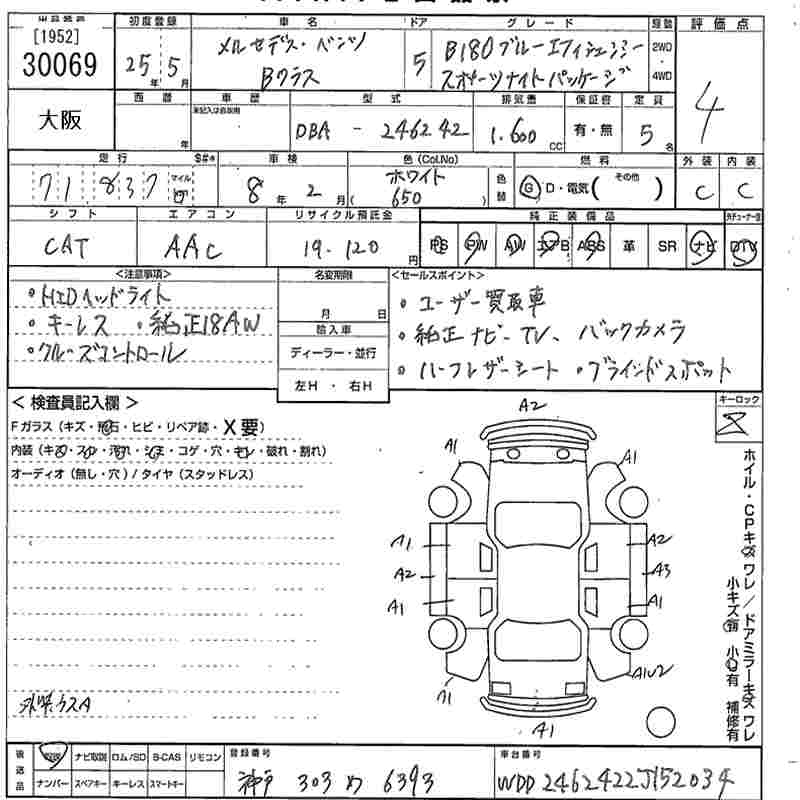 [1952]
30069
大阪
初度登録
25年 5月
車名
メルセデス・ベンツ
Bクラス
ドア
5
グレード
B180 ブルーエフィシェンシー
スポーツナイトパッケージ
駆動
2WD
・
4WD
評価点
4
西暦
年
車歴
未記入は自家用
型式
DBA - 246242
排気量
1.600 CC
保証書
有・無
定員
5名
走行
71837
マイル
車検
8年 2月
色 (Col.No)
ホワイト
( 650 )
色替
燃料
G D・電気 ( その他 )
外装
C
内装
C
シフト
CAT
エアコン
AAC
リサイクル預託金
19.120円
純正装備品
PS PW AW エアB ABS 革 SR ナビ DTV
<注意事項>
・HIDヘッドライト
・キーレス ・純正18AW
・クルーズコントロール
名変期限
月 日
輸入車
ディーラー・並行
左H・右H
<セールスポイント>
・ユーザー買取車
・純正ナビ-TV、バックカメラ
・ハーフレザーシート ・ブラインドスポット
<検査員記入欄>
Fガラス (キズ・飛石・ヒビ・リペア跡・X要)
内装 (キズ・スレ・汚れ・シミ・コゲ・穴・キレ・破れ・割れ)
オーディオ (無し・穴) / タイヤ (スタッドレス)
キーロック
A2
A1
A1
A1
A2
A2
A3
A1
A1
A1
A1U2
A1
ホイル・CPキズ ワレ / ドアミラーキズ ワレ
小キズ 有 補修有
後送品
取説 ナビ取説 ロム/SD B-CAS リモコン
ナンバー スペアキー キーレス スマートキー
登録番号
神戸 303 め 6393
車台番号
WDD2462422J152034